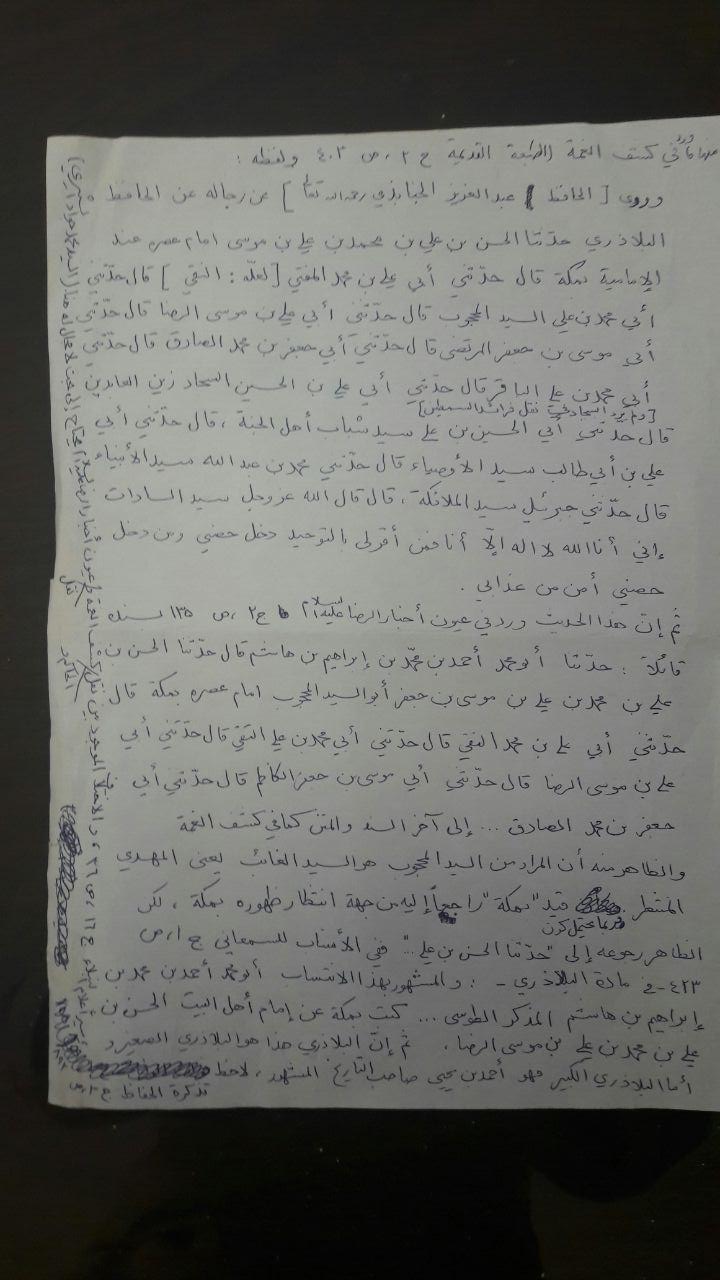 منها ما ورد في كشف الغمة (الطبعة القديمة ج ٢ ، ص ٤٠٣ ولفظه :
وروى [ الحافظ ] عبد العزيز الجنابذي رحمه الله تعالى [ عن رجاله عن الحافظ
البلاذري حدّثنا الحسن بن علي بن محمد بن علي بن موسى امام عصره عند
الإمامية بمكة قال حدّثني أبي علي بن محمد المفتي [ لعلّه : النقي ] قال حدّثني
أبي محمد بن علي السيد المحجوب قال حدّثني أبي علي بن موسى الرضا قال حدّثني
أبي موسى بن جعفر المرتضى قال حدّثني أبي جعفر بن محمد الصادق قال حدّثني
أبي محمد بن علي الباقر قال حدّثني أبي علي بن الحسين السجاد زين العابدين
[ السجاد في نقل فرائد السمطين ]
قال حدّثني أبي الحسين بن علي سيد شباب أهل الجنة ، قال حدّثني أبي
علي بن أبي طالب سيد الأوصياء قال حدّثني محمد بن عبد الله سيد الأنبياء
قال حدّثني جبرئيل سيد الملائكة ، قال قال الله عز وجل سيد السادات
إني أنا الله لا اله إلّا أنا فمن أقر لي بالتوحيد دخل حصني ومن دخل
حصني أمن من عذابي .
ثم إنّ هذا الحديث ورد في عيون أخبار الرضا عليه السلام ج ٢ ، ص ١٣٥ بسنده
قائلاً : حدّثنا أبو محمد أحمد بن محمّد بن إبراهيم بن هاشم قال حدّثنا الحسن بن
علي بن محمد بن علي بن موسى بن جعفر أبو السيد المحجوب امام عصره بمكة قال
حدّثني أبي علي بن محمد النقي قال حدّثني أبي محمد بن علي التقي قال حدّثني أبي
علي بن موسى الرضا قال حدّثني أبي موسى بن جعفر الكاظم قال حدّثني أبي
جعفر بن محمد الصادق ... إلى آخر السند والمتن كما في كشف الغمة
والظاهر منه أن المراد من السيد المحجوب هو السيد الغائب يعني المهدي
المنتظر قيد "بمكة" راجعاً إليه من جهة انتظار ظهوره بمكة ، لكن
وربما يحتمل كون
الظاهر رجوعه إلى "حدّثنا الحسن بن علي .." ففي الأنساب للسمعاني ج ١ ، ص
٤٢٣ - في مادة البلاذري - : والمشهور بهذا الانتساب أبو محمد أحمد بن محمد بن
إبراهيم بن هاشم المذكر الطوسي ... كتب بمكة عن إمام أهل البيت الحسن بن
علي بن محمد بن علي بن موسى الرضا . ثم إنّ البلاذري هذا هو البلاذري الصغير و
أما البلاذري الكبير فهو أحمد بن يحيى صاحب التاريخ المشهور ، لاحظ
تذكرة الحفاظ ج ٣ ص
سير أعلام النبلاء ج ١٦ ، ص ٣٦ ، و الاختلاف الموجود بين نقل كشف الغمة و عيون أخبار الرضا عليه السلام يحتاج إلى بحث لا مجال له هنا (السيد محمد جواد الشبيري)
نقل